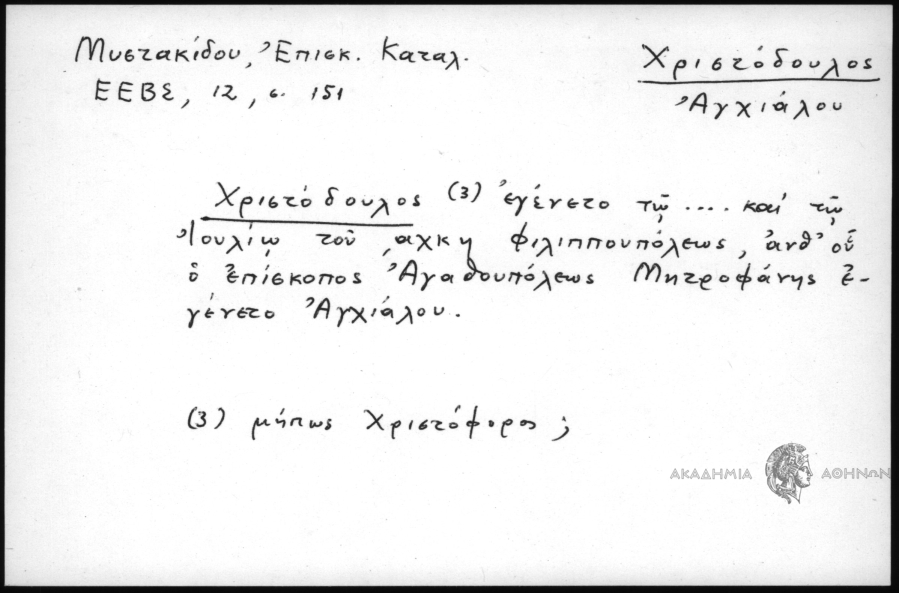 Μυστακίδου, Ἐπισκ. Καταλ.
ΕΕΒΣ, 12, σ. 151
Χριστόδουλος
Ἀγχιάλου
Χριστόδουλος (3) ἐγένετο τῷ .... καί τῷ
Ἰουλίῳ τοῦ ͵αχκη Φιλιππουπόλεως, ἀνθ' οὗ
ὁ ἐπίσκοπος Ἀγαθουπόλεως Μητροφάνης ἐ-
γένετο Ἀγχιάλου.
(3) μήπως Χριστόφορος;
ΑΚΑΔΗΜΙΑ ΑΘΗΝΩΝ